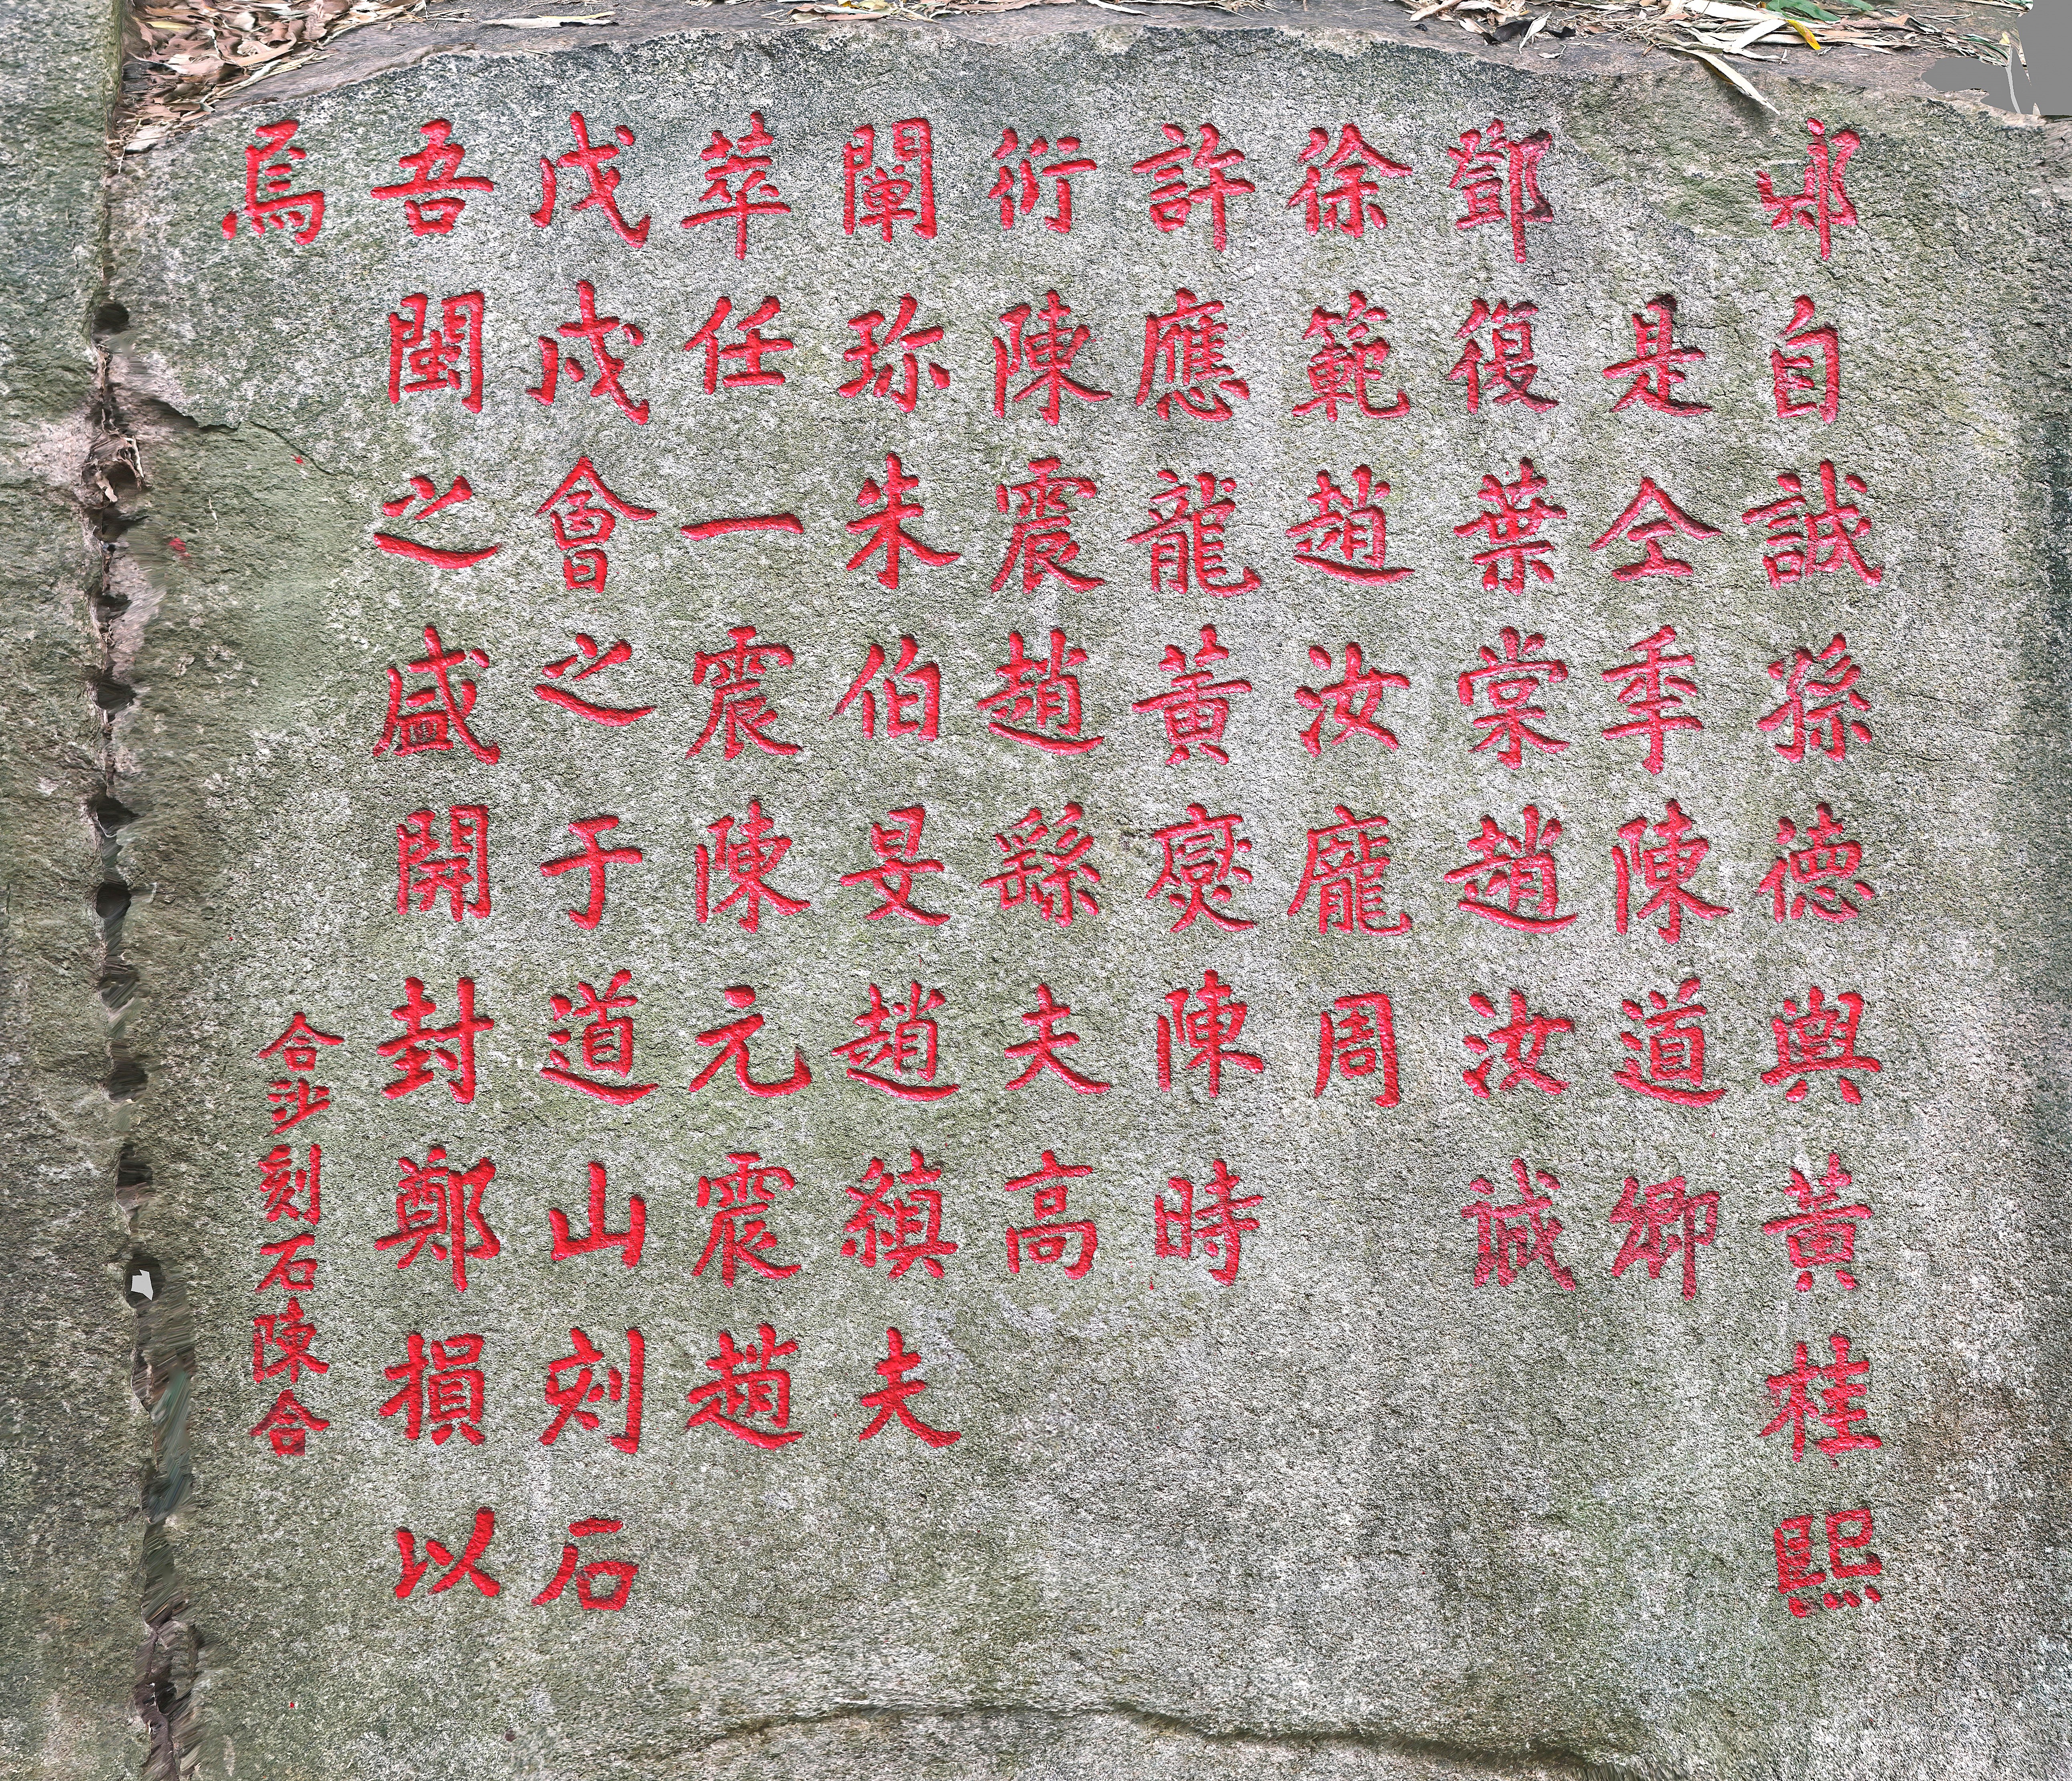 自誠孫德輿黃桂熙
是仝秊陳道卿
鄧復葉棠趙汝誠
徐範趙汝龐周
許應龍黃爕陳時
衍陳震趙繇夫高
闡珎朱伯妟趙縝夫
萃任一震陳元震趙
戊戌會之于道山刻石
吾閩之盛開封鄭損以
焉
合沙刻石陳合